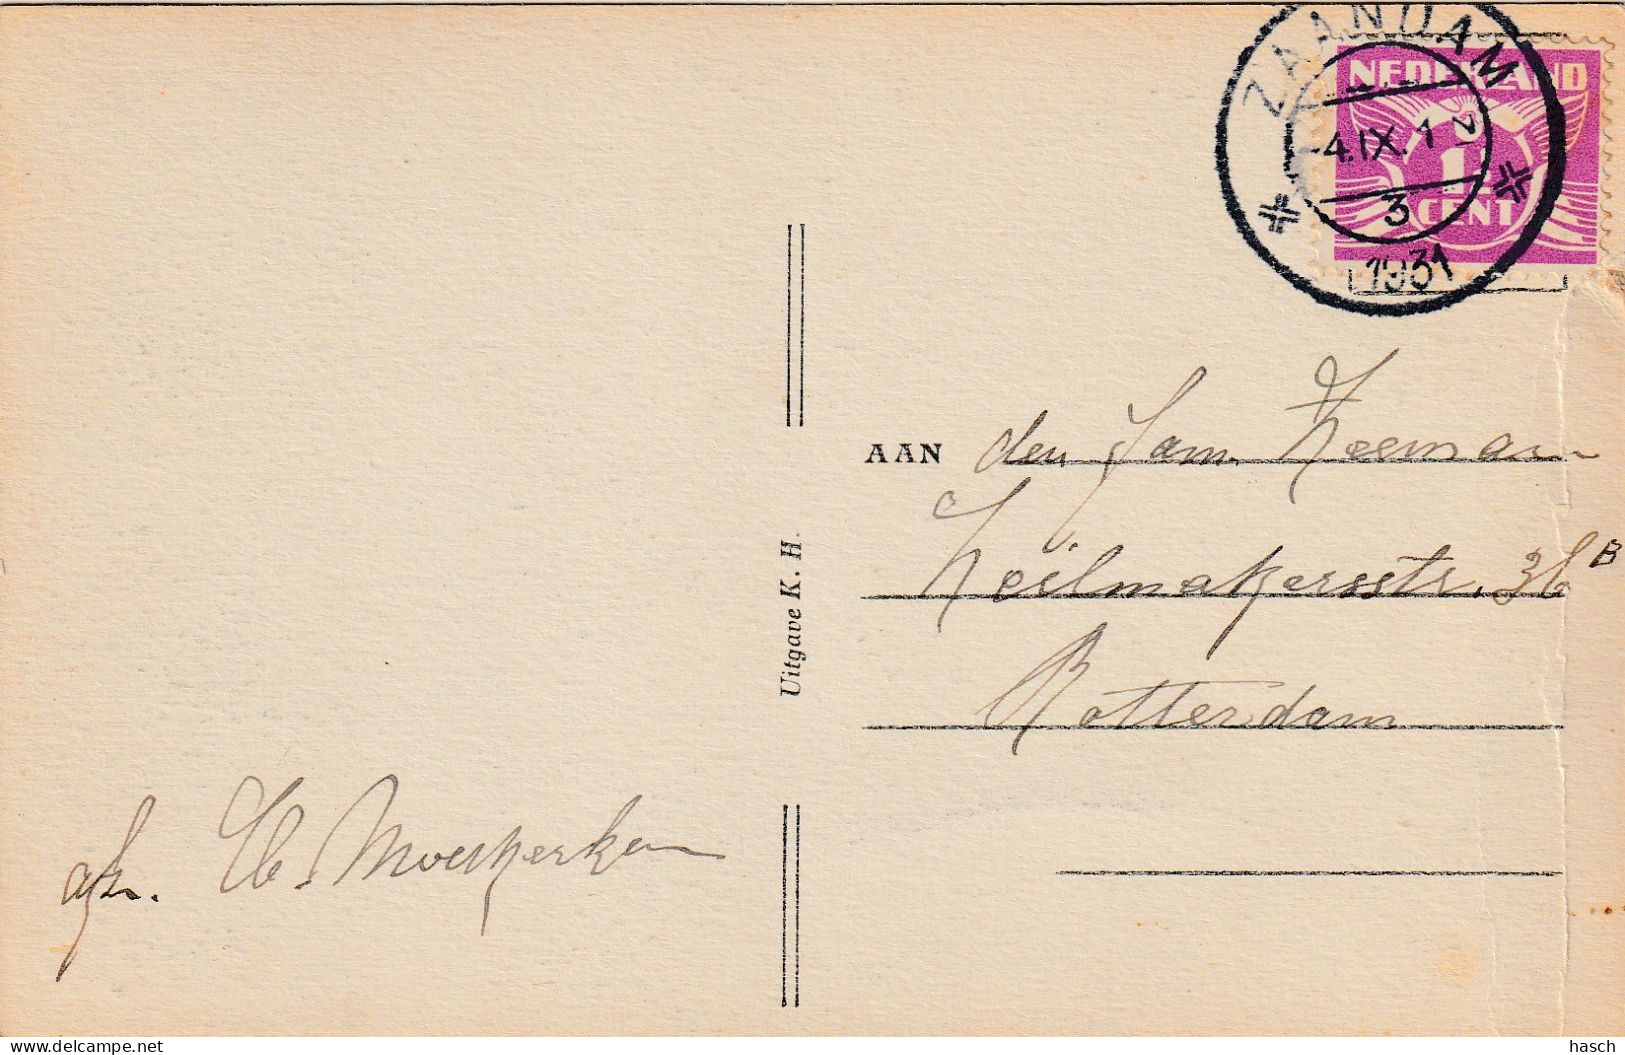 ZAANDAM
NEDERLAND
4.IX. 1
1½
3
CENT
1931
AAN den Fam. Zeeman
Zeilmakersstr. 36 B
Rotterdam
Uitgave K. H.
afz.
delcampe.net
hasch